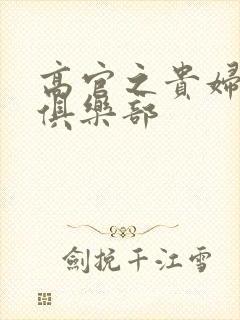 高官之貴婦
俱樂部
劍挽千江雪